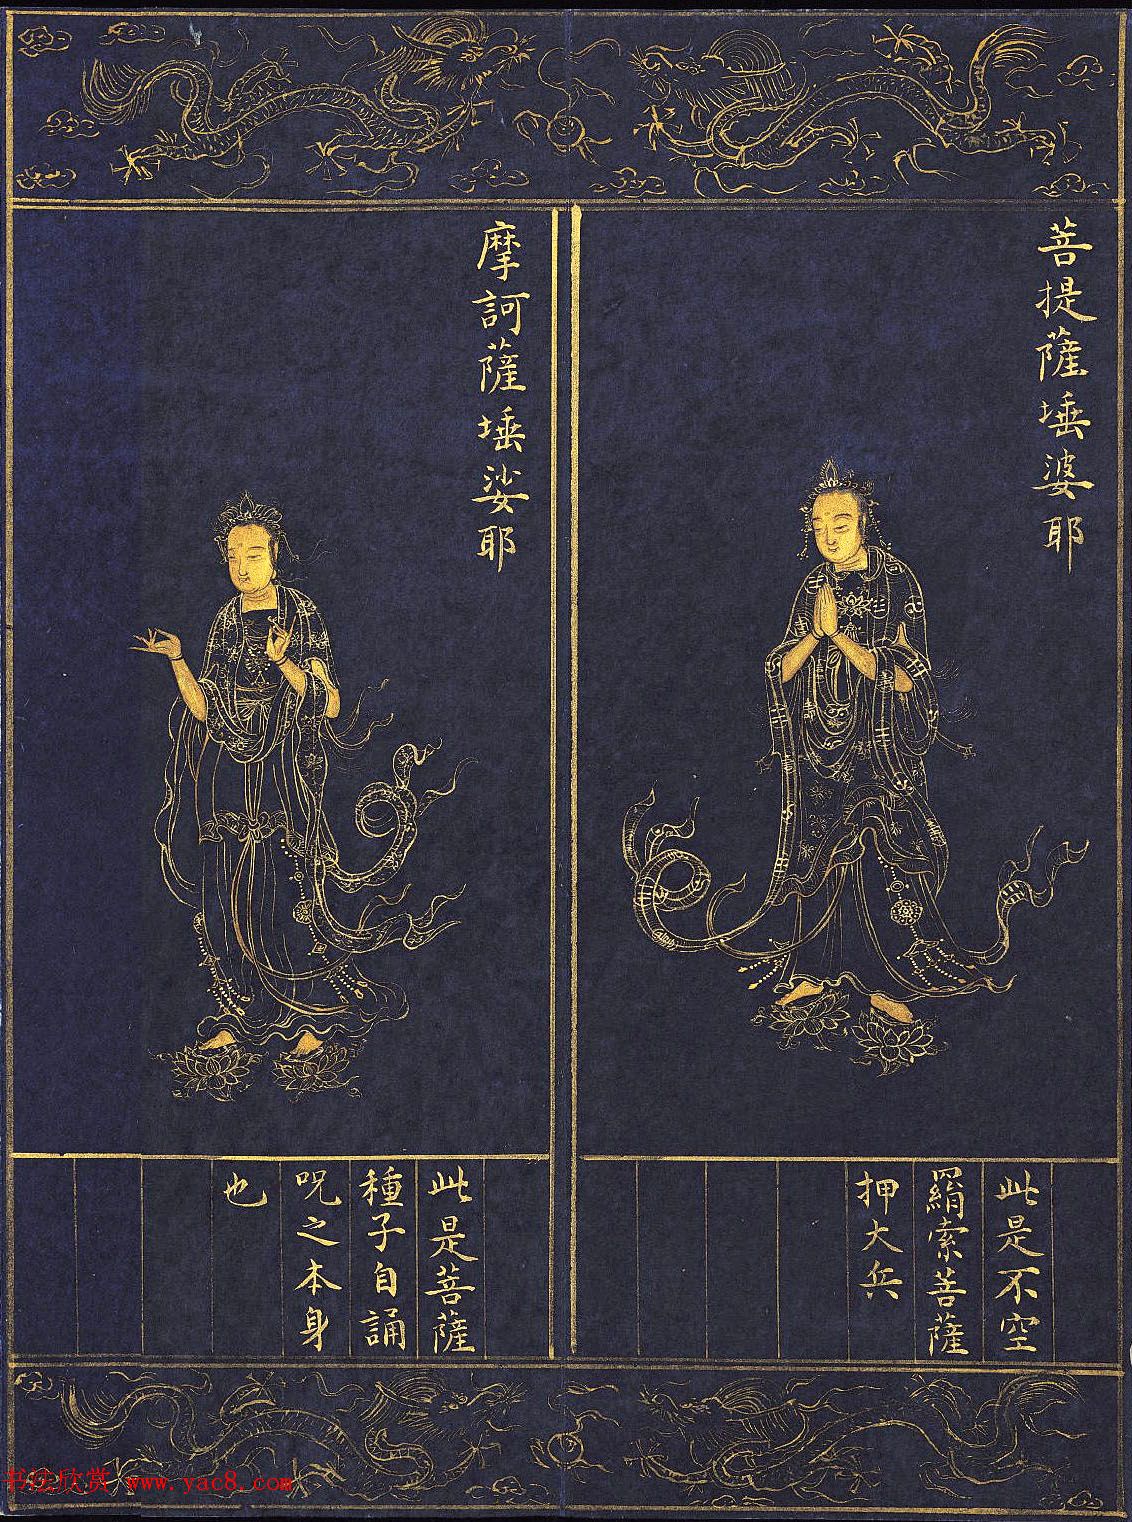 菩提薩埵婆耶
此是不空
羂索菩薩
押大兵
摩訶薩埵娑耶
此是菩薩
種子自誦
呪之本身
也
书法欣赏 www.yac8.com